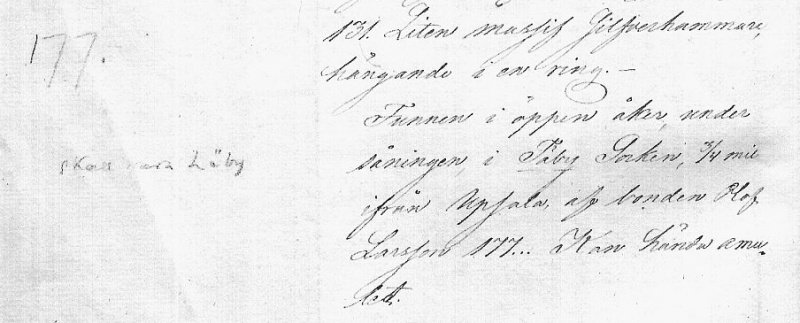 177.
131. Liten massif Silfverhammare,
hängande i en ring. —
Funnen i öppen åker, under
såningen, i Täby Socken, 3/4 mil
ifrån Upsala, af bonden Olof
Larsson 177... Kan hända amu-
lett.
skall vara Läby